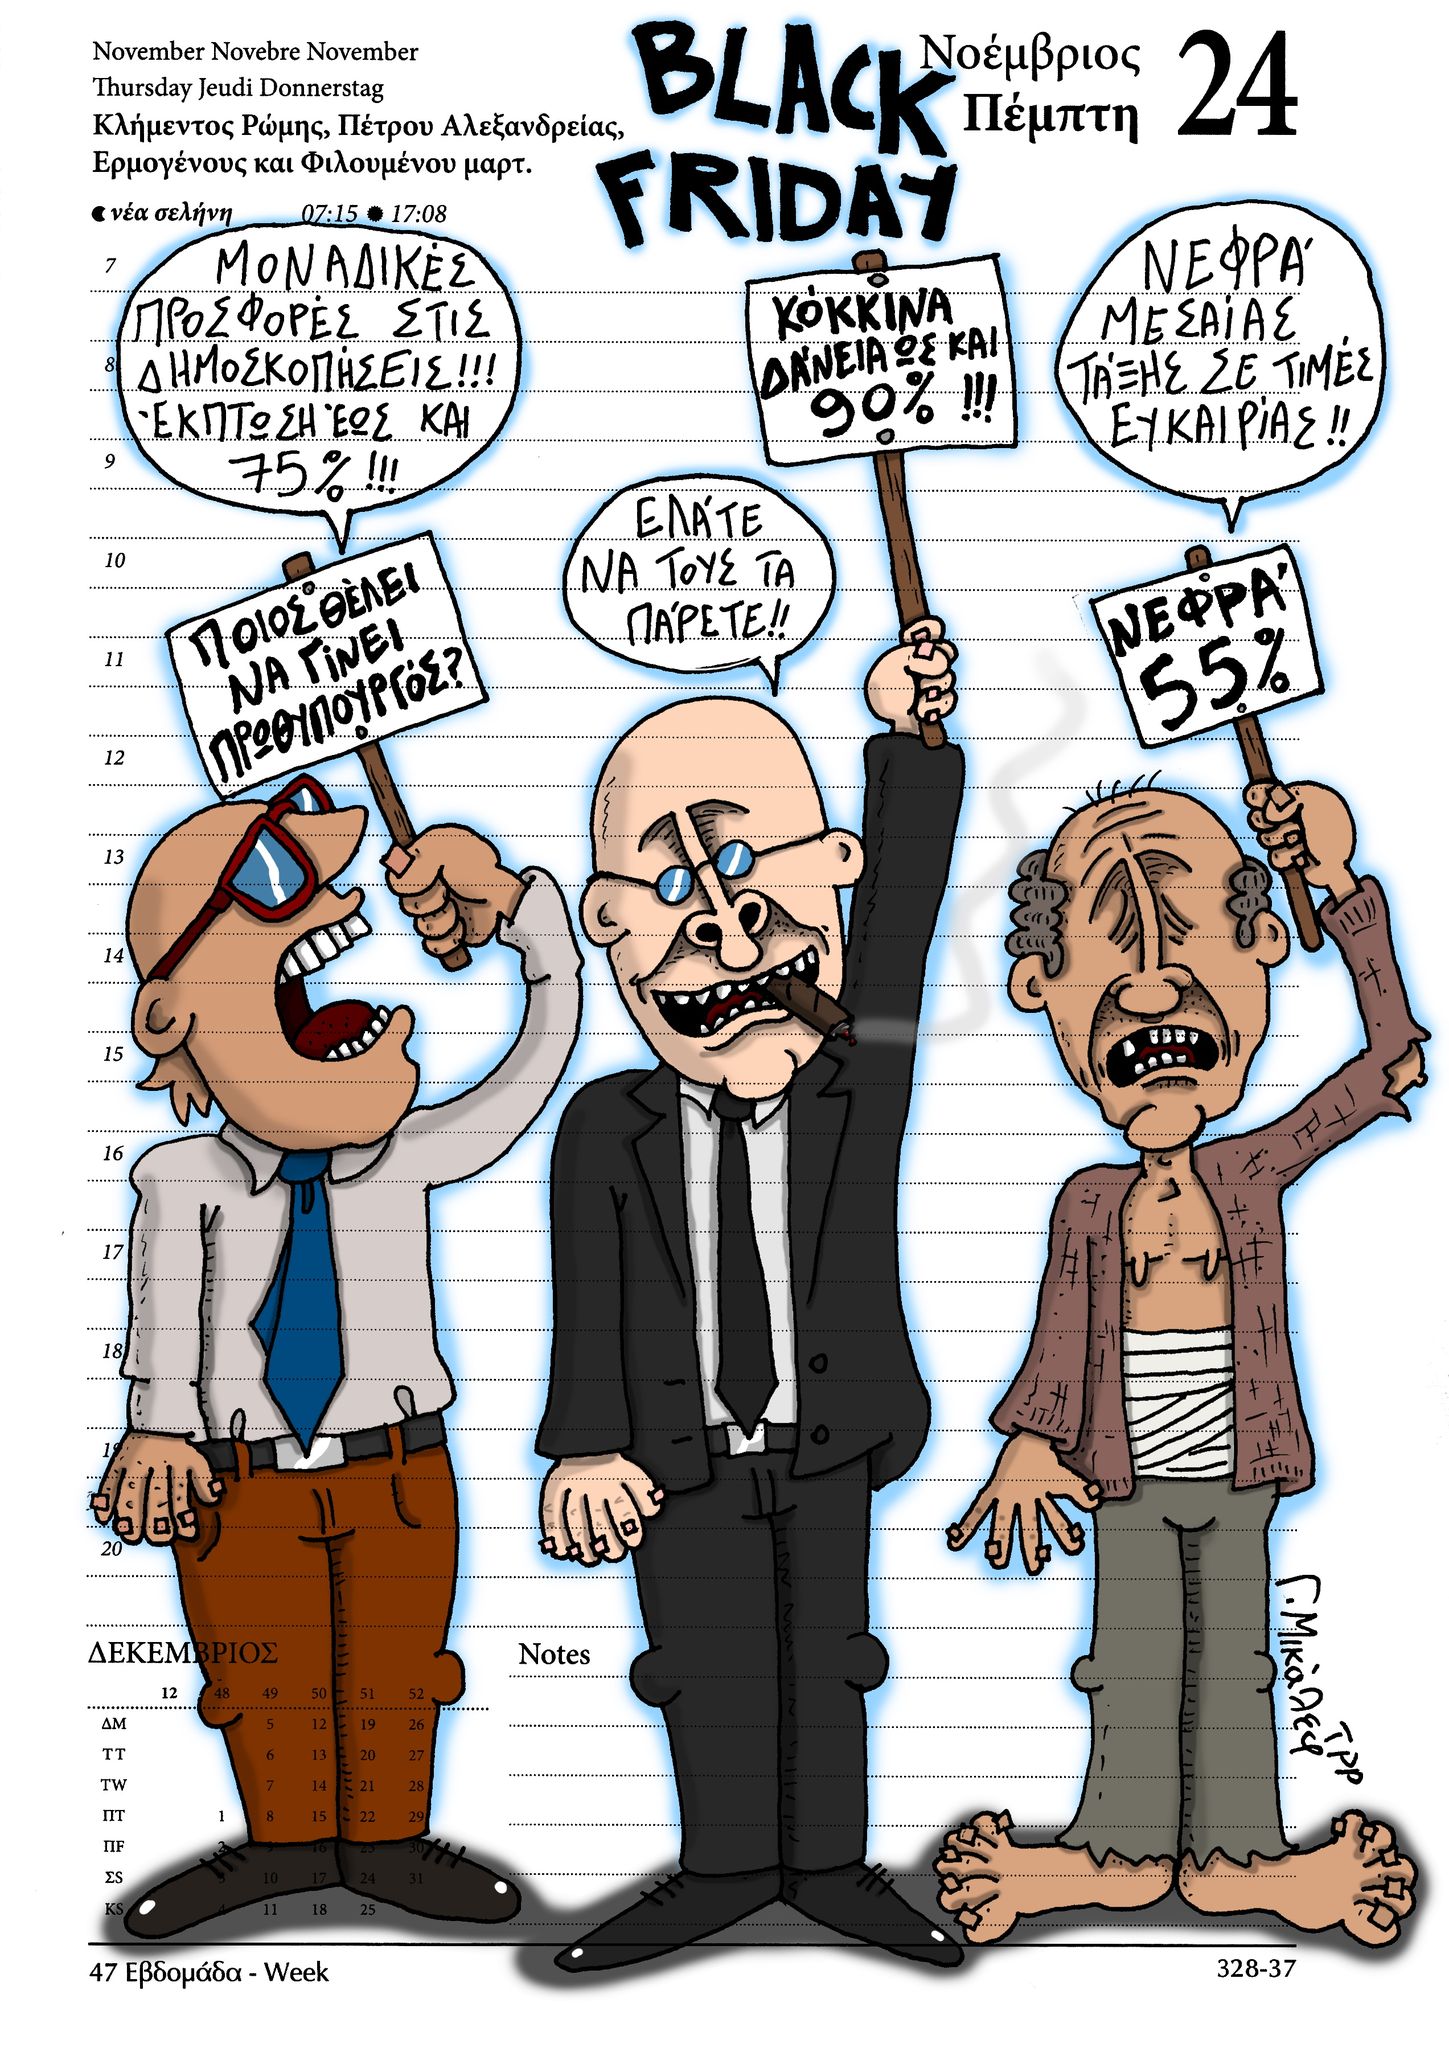 November Novebre November
Thursday Jeudi Donnerstag
Κλήμεντος Ρώμης, Πέτρου Αλεξανδρείας,
Ερμογένους και Φιλουμένου μαρτ.
νέα σελήνη 07:15 17:08
BLACK
FRIDAY
Νοέμβριος
Πέμπτη
24
ΜΟΝΑΔΙΚΈΣ
ΠΡΟΣΦΟΡΈΣ ΣΤΙΣ
ΔΗΜΟΣΚΟΠΉΣΕΙΣ!!!
ΈΚΠΤΩΣΗ ΈΩΣ ΚΑΙ
75% !!!
ΠΟΙΟΣ ΘΈΛΕΙ
ΝΑ ΓΊΝΕΙ
ΠΡΩΘΥΠΟΥΡΓΌΣ?
ΕΛΆΤΕ
ΝΑ ΤΟΥΣ ΤΑ
ΠΆΡΕΤΕ!!
ΚΌΚΚΙΝΑ
ΔΆΝΕΙΑ ΩΣ ΚΑΙ
90% !!!
ΝΕΦΡΆ
ΜΕΣΑΊΑΣ
ΤΆΞΗΣ ΣΕ ΤΙΜΈΣ
ΕΥΚΑΙΡΊΑΣ!!
ΝΕΦΡΆ
55%
7
8
9
10
11
12
13
14
15
16
17
18
19
20
Γ. Μικάλεφ
ΤΡΡ
ΔΕΚΕΜΒΡΙΟΣ
12 48 49 50 51 52
ΔM 5 12 19 26
ΤT 6 13 20 27
ΤW 7 14 21 28
ΠT 1 8 15 22 29
ΠF 2 9 16 23 30
ΣS 3 10 17 24 31
ΚS 4 11 18 25
Notes
47 Εβδομάδα - Week
328-37